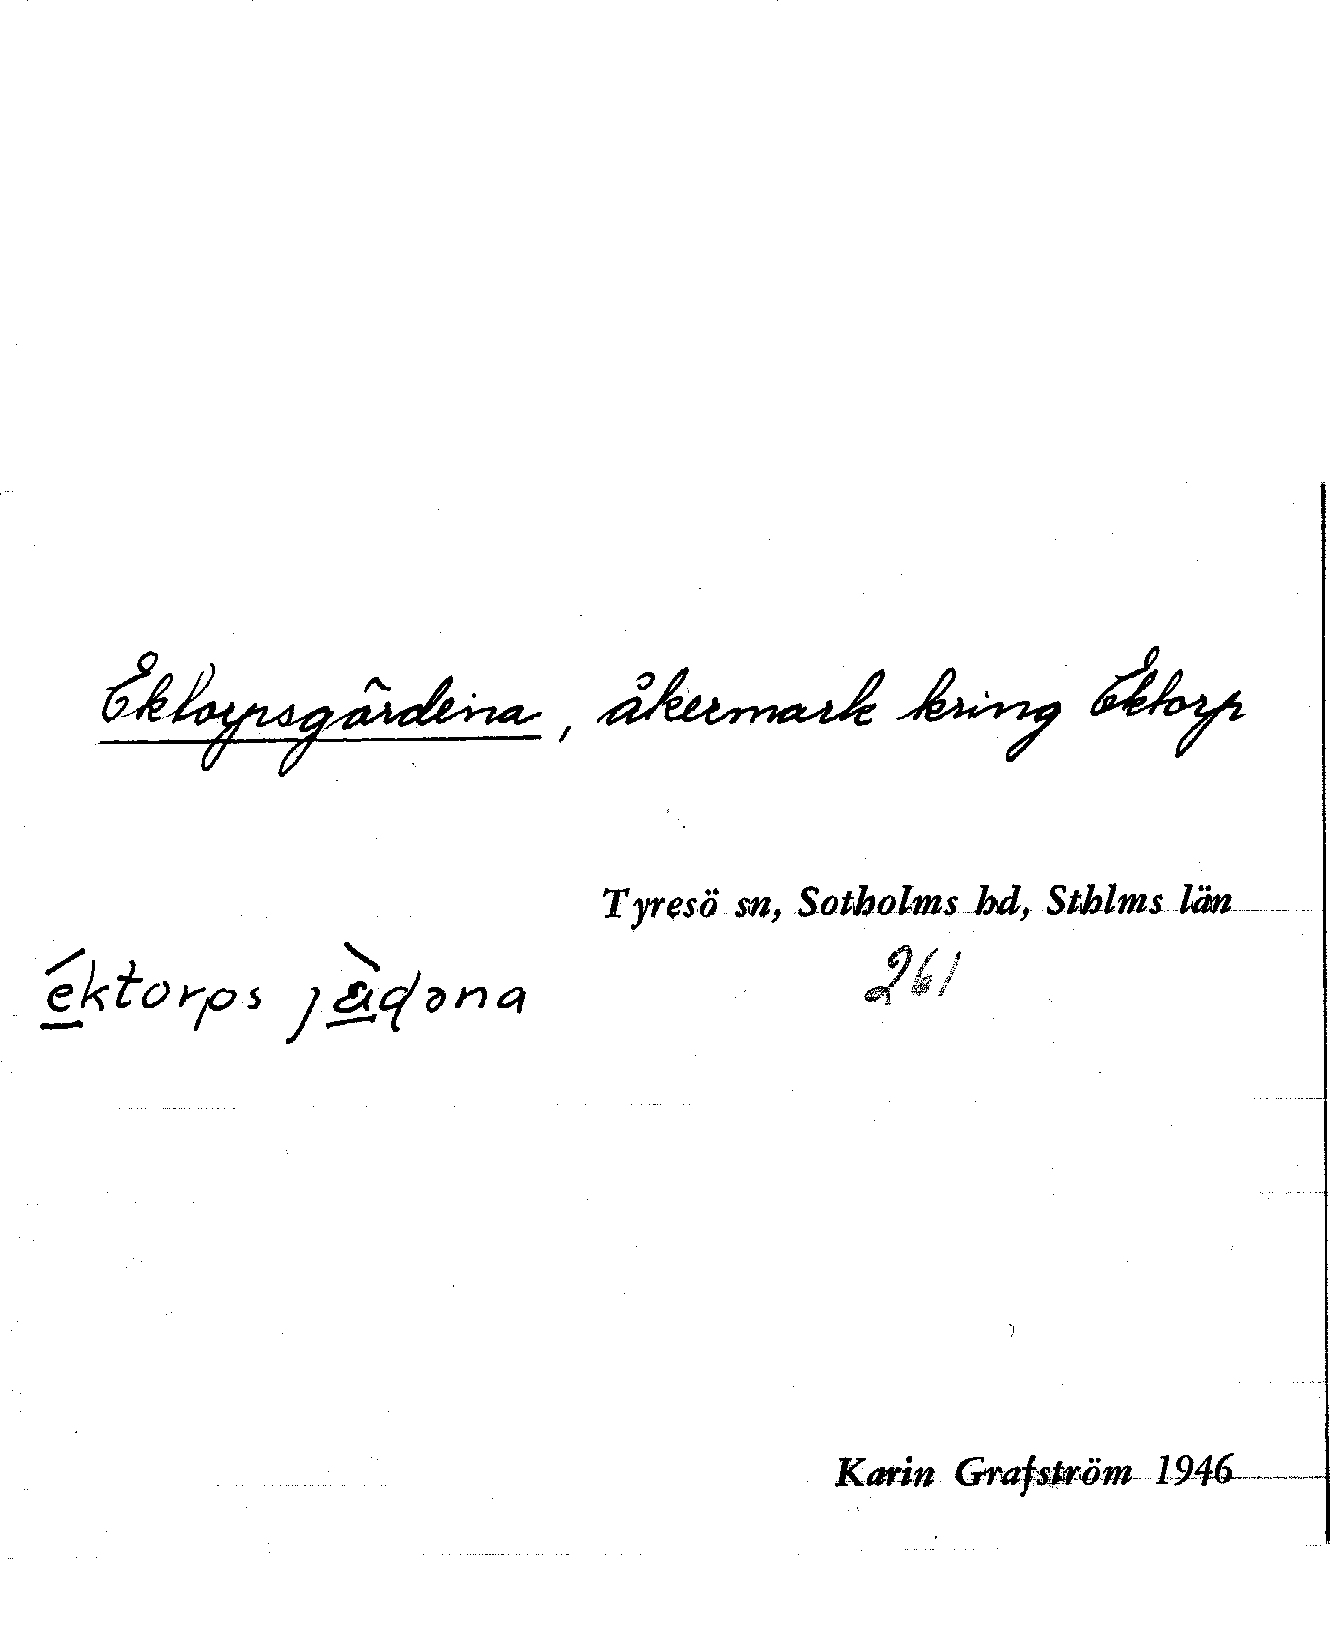 Ektorpsgärdena, åkermark kring Ektorp
Tyresö sn, Sotholms hd, Sthlms län
261
éktorps jæ̀ɖəna
Karin Grafström 1946